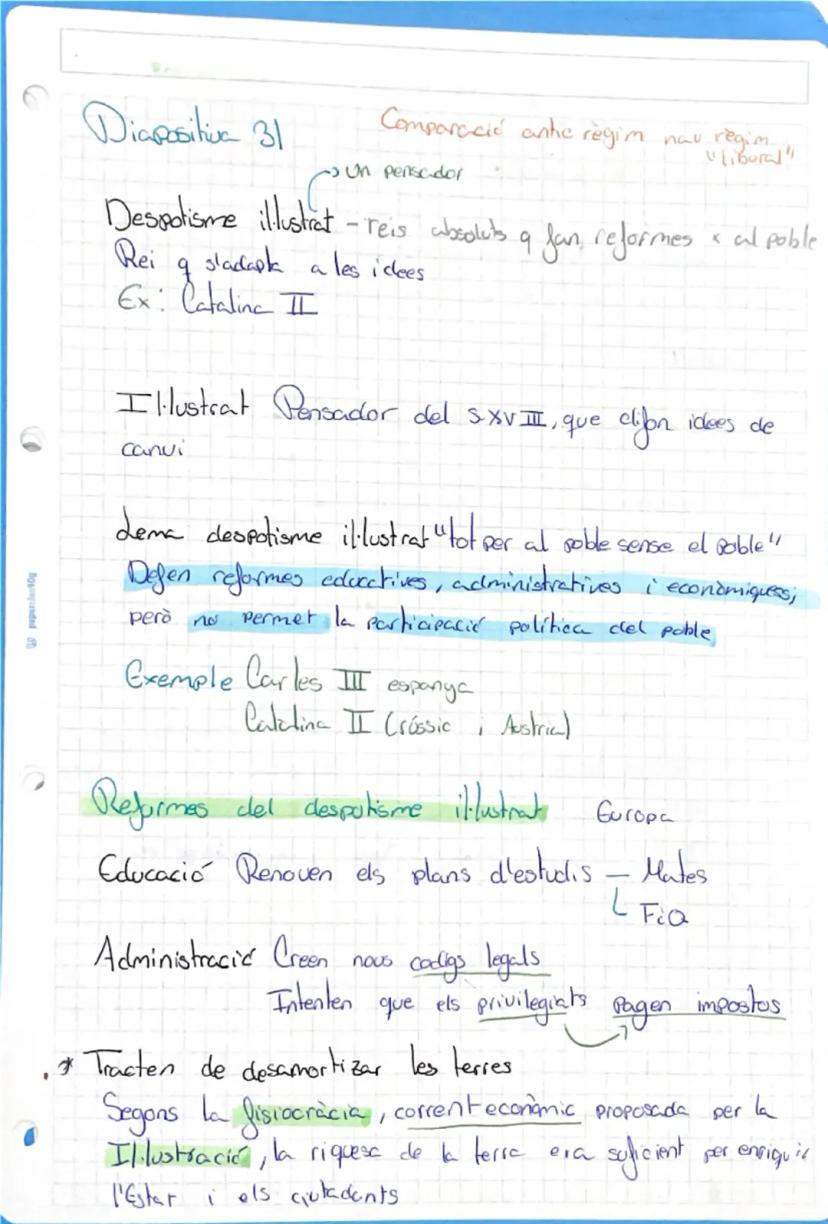 Diapositiva 31
Comparació antic règim nou règim
"liberal"
un pensador
Despotisme il·lustrat - reis absoluts q fan reformes x al poble
Rei q s'adapta a les idees
Ex: Catalina II
Il·lustrat Pensador del s.XVIII, que difon idees de
canvi
Lema despotisme il·lustrat "tot per al poble sense el poble"
Defen reformes educatives, administratives i econòmiques;
però no permet la participació política del poble
Exemple Carles III espanya
Catalina II (rússia i Austria)
Reformes del despotisme il·lustrat Europa
Educació Renoven els plans d'estudis - Mates
FiQ
Administració Creen nous codigs legals
Intenten que els privilegiats pagen impostos
* Tracten de desamortizar les terres
Segons la fisiocràcia, corrent econòmic proposada per la
Il·lustració, la riquesa de la terra era suficient per enriquir
l'Estat i els ciutadants